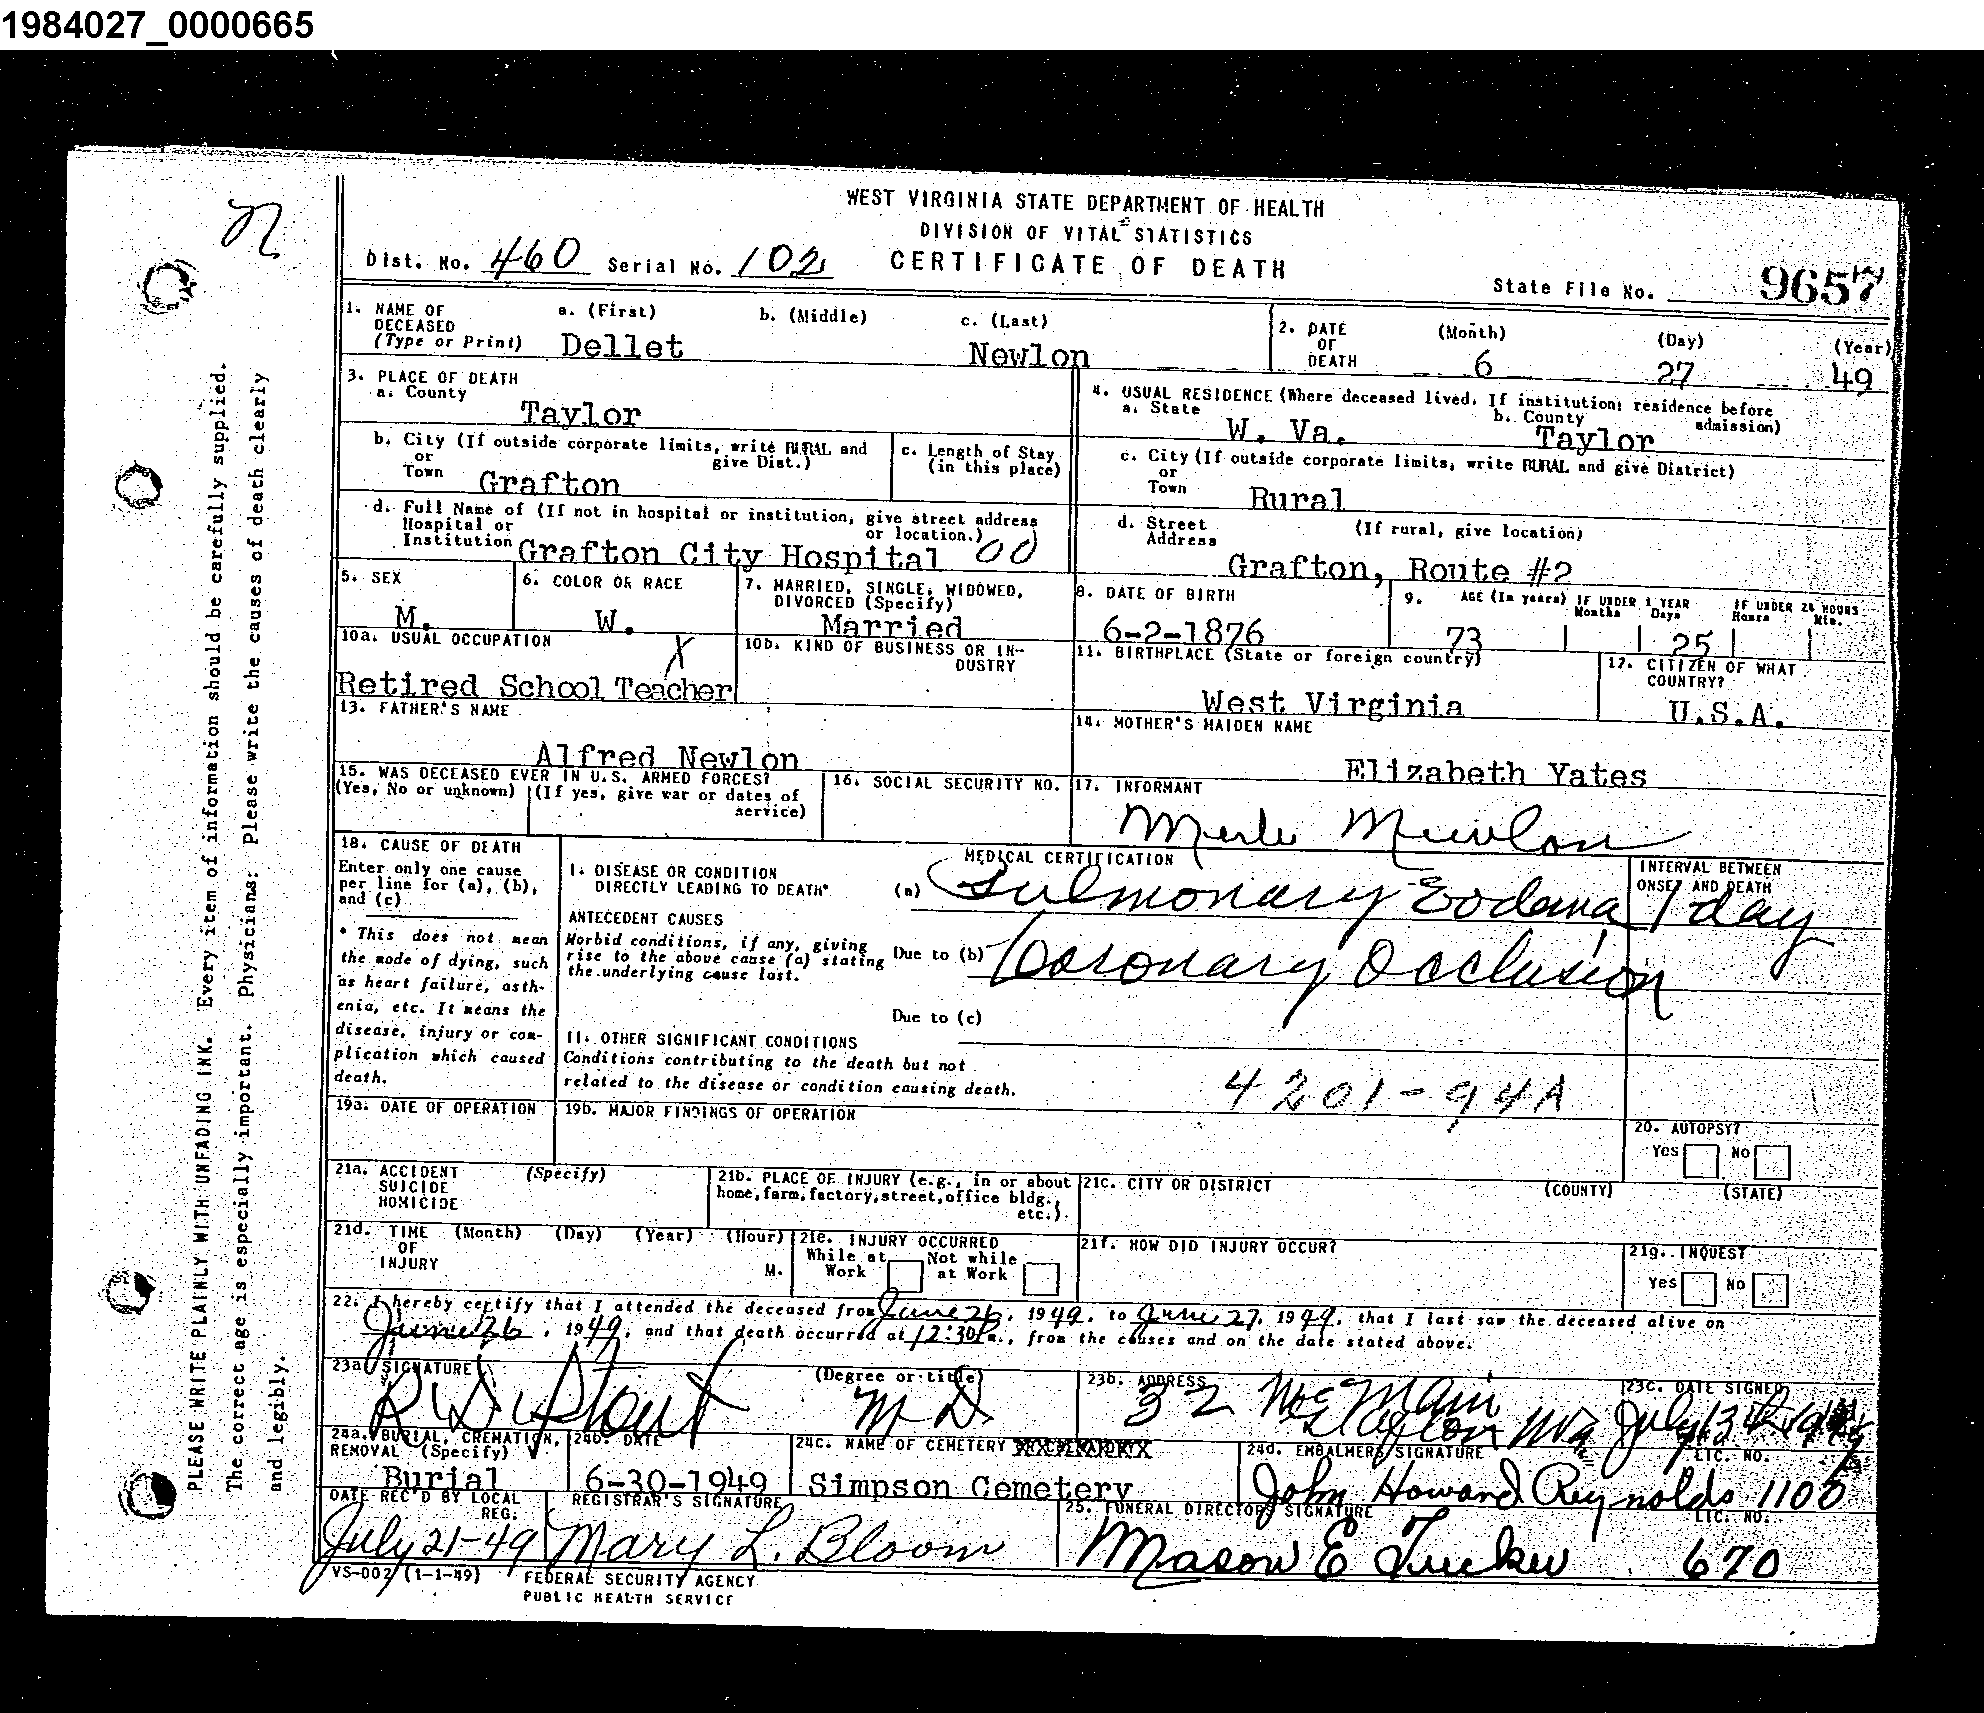 1984027_0000665
WEST VIRGINIA STATE DEPARTMENT OF HEALTH
DIVISION OF VITAL STATISTICS
CERTIFICATE OF DEATH
Dist. No. 460 Serial No. 102
State File No. 9657
1. NAME OF DECEASED (Type or Print) a. (First) b. (Middle) c. (Last)
Dellet Newlon
2. DATE OF DEATH (Month) (Day) (Year)
6 27 49
3. PLACE OF DEATH
a. County
Taylor
b. City (If outside corporate limits, write RURAL and give Dist.)
or Town Grafton
c. Length of Stay (in this place)
d. Full Name of (If not in hospital or institution, give street address or location.)
Hospital or Institution Grafton City Hospital 00
4. USUAL RESIDENCE (Where deceased lived. If institution: residence before admission)
a. State W. Va. b. County Taylor
c. City (If outside corporate limits, write RURAL and give District)
or Town Rural
d. Street Address (If rural, give location)
Grafton, Route #2
5. SEX
M.
6. COLOR OR RACE
W.
7. MARRIED, SINGLE, WIDOWED, DIVORCED (Specify)
Married
8. DATE OF BIRTH
6-2-1876
9. AGE (In years) IF UNDER 1 YEAR Months Days IF UNDER 24 HOURS Hours Min.
73 25
10a. USUAL OCCUPATION X
Retired School Teacher
10b. KIND OF BUSINESS OR INDUSTRY
11. BIRTHPLACE (State or foreign country)
West Virginia
12. CITIZEN OF WHAT COUNTRY?
U.S.A.
13. FATHER'S NAME
Alfred Newlon
14. MOTHER'S MAIDEN NAME
Elizabeth Yates
15. WAS DECEASED EVER IN U.S. ARMED FORCES?
(Yes, No or unknown) (If yes, give war or dates of service)
16. SOCIAL SECURITY NO.
17. INFORMANT
Merle Newlon
18. CAUSE OF DEATH
Enter only one cause per line for (a), (b), and (c)
* This does not mean the mode of dying, such as heart failure, asthenia, etc. It means the disease, injury or complication which caused death.
MEDICAL CERTIFICATION
INTERVAL BETWEEN ONSET AND DEATH
I. DISEASE OR CONDITION DIRECTLY LEADING TO DEATH*
(a) Pulmonary Eodema 1 day
ANTECEDENT CAUSES
Morbid conditions, if any, giving rise to the above cause (a) stating the underlying cause last.
Due to (b) Coronary Occlusion
Due to (c)
II. OTHER SIGNIFICANT CONDITIONS
Conditions contributing to the death but not related to the disease or condition causing death.
4201-94A
19a. DATE OF OPERATION
19b. MAJOR FINDINGS OF OPERATION
20. AUTOPSY?
Yes No
21a. ACCIDENT SUICIDE HOMICIDE (Specify)
21b. PLACE OF INJURY (e.g., in or about home, farm, factory, street, office bldg., etc.)
21c. CITY OR DISTRICT (COUNTY) (STATE)
21d. TIME OF INJURY (Month) (Day) (Year) (Hour) M.
21e. INJURY OCCURRED
While at Work Not while at Work
21f. HOW DID INJURY OCCUR?
21g. INQUEST
Yes No
22. I hereby certify that I attended the deceased from June 26, 1949, to June 27, 1949, that I last saw the deceased alive on
June 26, 1949, and that death occurred at 12:30 P m., from the causes and on the date stated above.
23a. SIGNATURE (Degree or title)
R D Stout M D
23b. ADDRESS
32 Main
Grafton W Va
23c. DATE SIGNED
July 13
24a. BURIAL, CREMATION, REMOVAL (Specify)
Burial
24b. DATE
6-30-1949
24c. NAME OF CEMETERY
Simpson Cemetery
24d. EMBALMERS SIGNATURE LIC. NO.
John Howard Reynolds 1100
DATE REC'D BY LOCAL REG.
July 21-49
REGISTRAR'S SIGNATURE
Mary L. Bloom
25. FUNERAL DIRECTORS SIGNATURE LIC. NO.
Mason E Tucker 670
VS-002 (1-1-49) FEDERAL SECURITY AGENCY
PUBLIC HEALTH SERVICE
PLEASE WRITE PLAINLY WITH UNFADING INK. Every item of information should be carefully supplied.
The correct age is especially important. Physicians: Please write the causes of death clearly
and legibly.